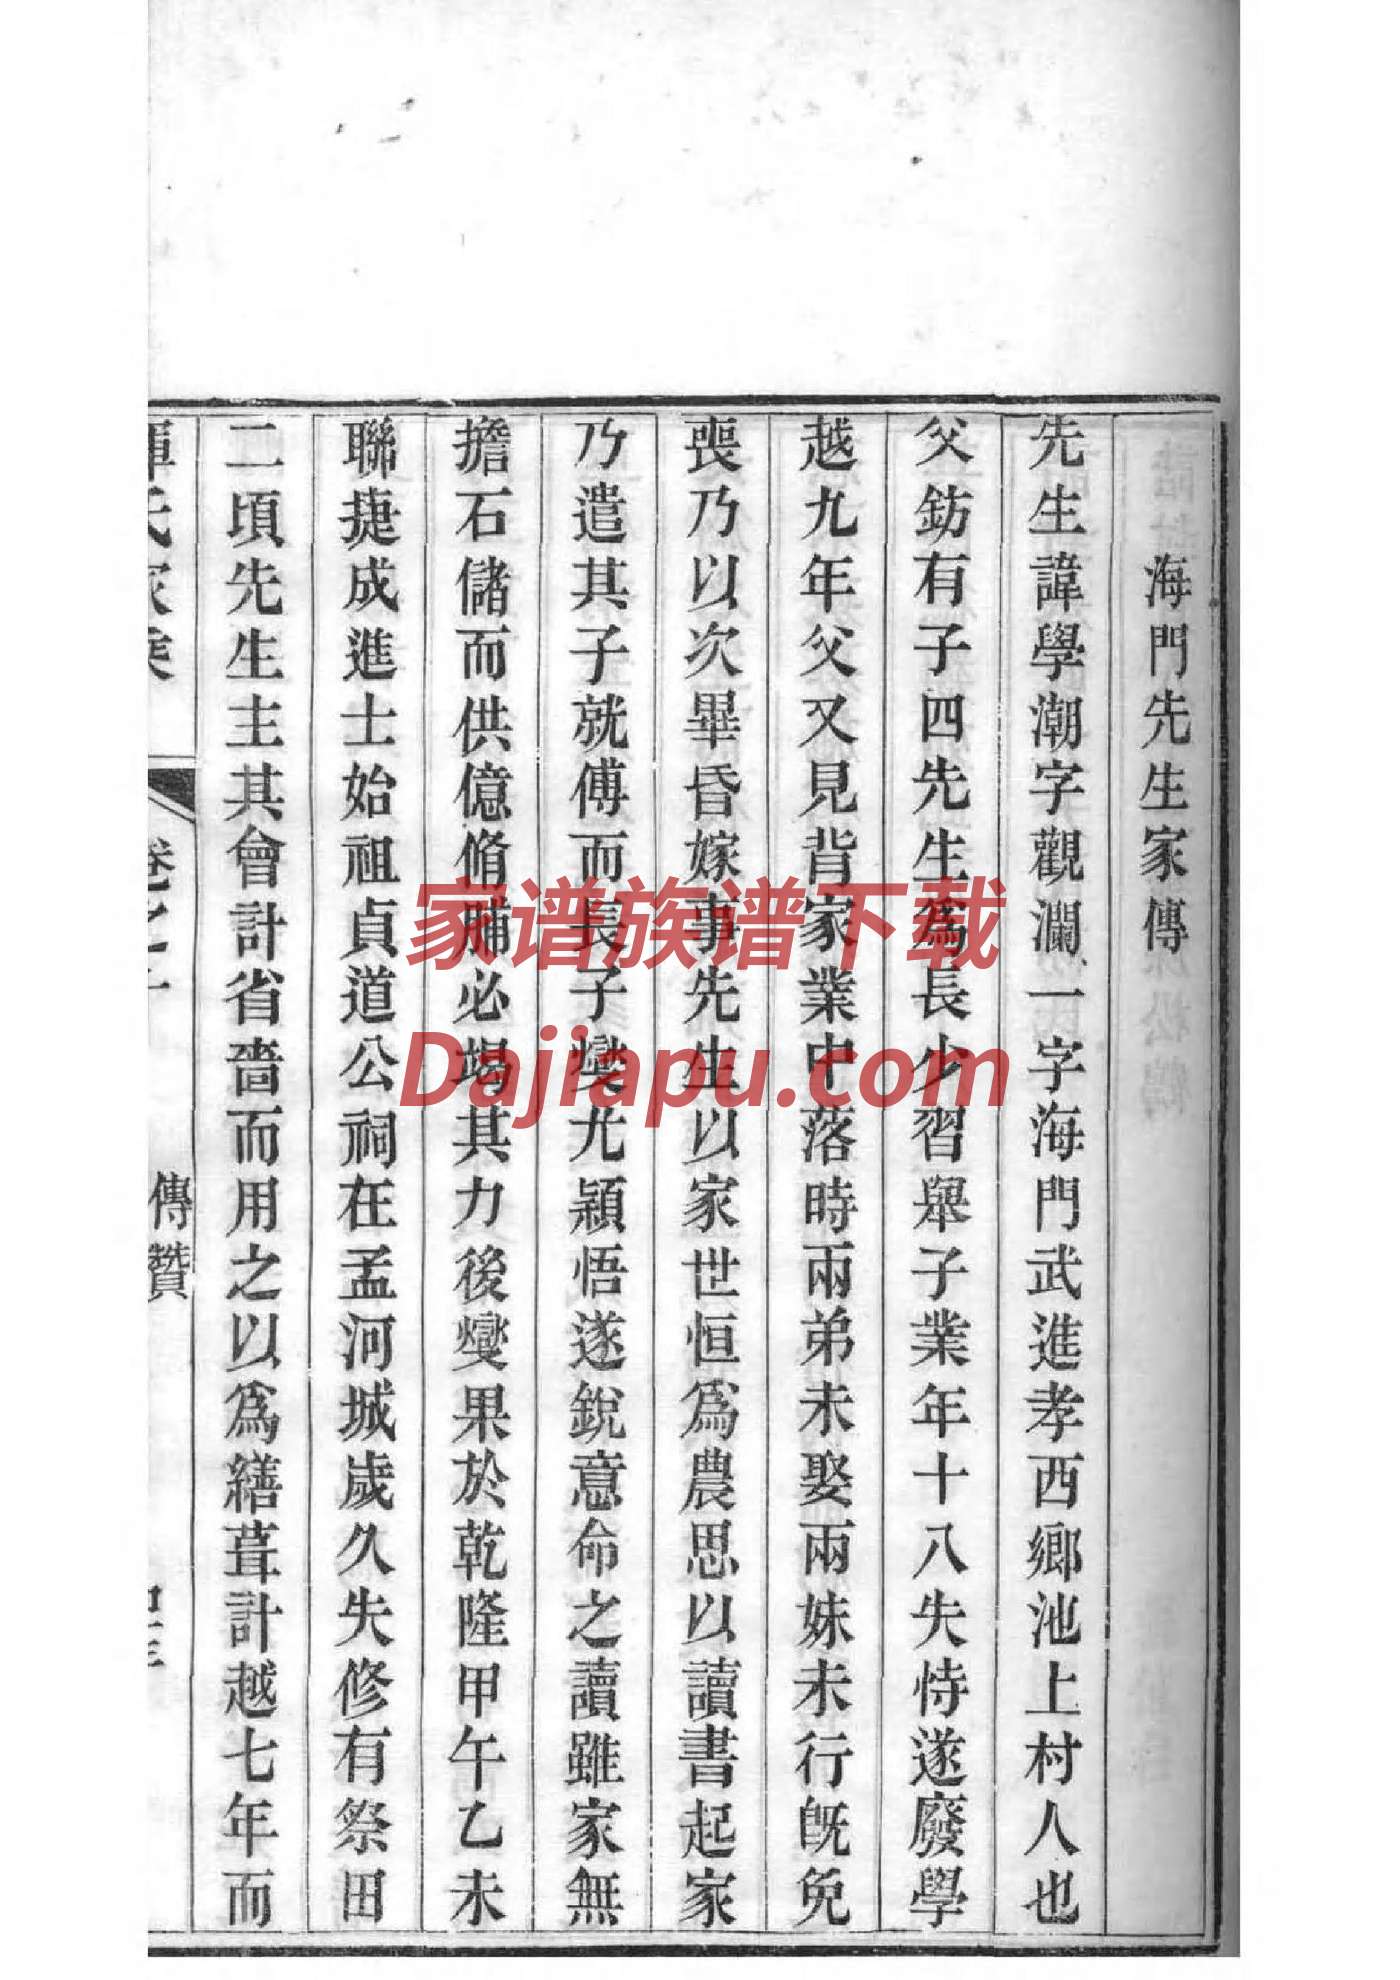 海門先生家傳
先生諱學潮字觀瀾一字海門武進孝西鄉池上村人也
父鈁有子四先生爲長少習舉子業年十八失恃遂廢學
越九年父又見背家業中落時兩弟未娶兩妹未行旣免
喪乃以次畢昏嫁事先生以家世恒爲農思以讀書起家
乃遣其子就傅而長子燮尤穎悟遂銳意命之讀雖家無
擔石儲而供億脩脯必竭其力後燮果於乾隆甲午乙未
聯捷成進士始祖貞道公祠在孟河城歲久失修有祭田
二頃先生主其會計省嗇而用之以爲繕葺計越七年而
氏家乘
卷之
傳贊
家谱族谱下载
Dajiapu.com